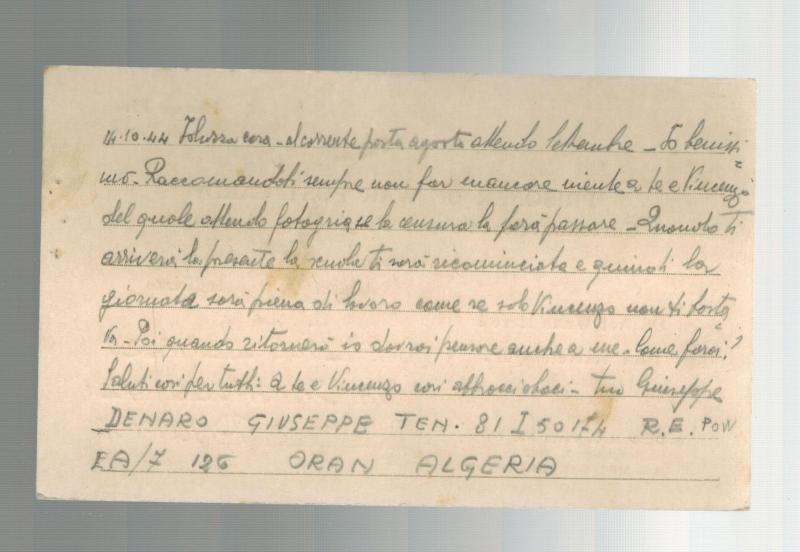 14.10.44 cara - al corrente posta agosto attendo Settembre - Io benissi=
mo - Raccomandoti sempre non far mancare niente a te e Vincenzo
del quale attendo fotogria se la censura la farà passare - Quando ti
arriverà la presente la scuola ti sarà ricominciata e quindi la
giornata sarà piena di lavoro come se solo Vincenzo non ti basta=
va - Poi quando ritornerò io dovrai pensare anche a me - Come farai?
Saluti cari per tutti: a te e Vincenzo cari abbracciobaci - tuo Giuseppe
DENARO GIUSEPPE TEN. 81 I 50174 R.E. POW
EA/7 126 ORAN ALGERIA